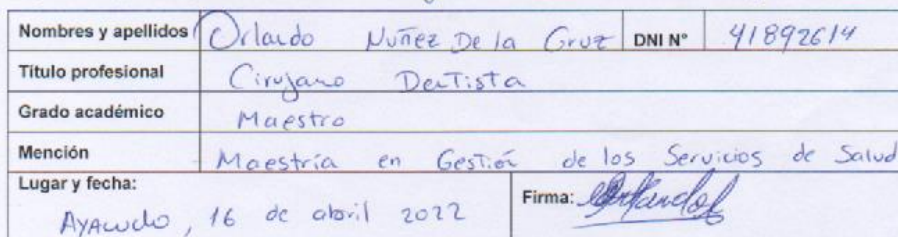 Nombres y apellidos Orlando Nuñez De la Cruz DNI N° 41892614
Título profesional Cirujano Dentista
Grado académico Maestro
Mención Maestría en Gestión de los Servicios de Salud
Lugar y fecha: Firma:
Ayacucho, 16 de abril 2022